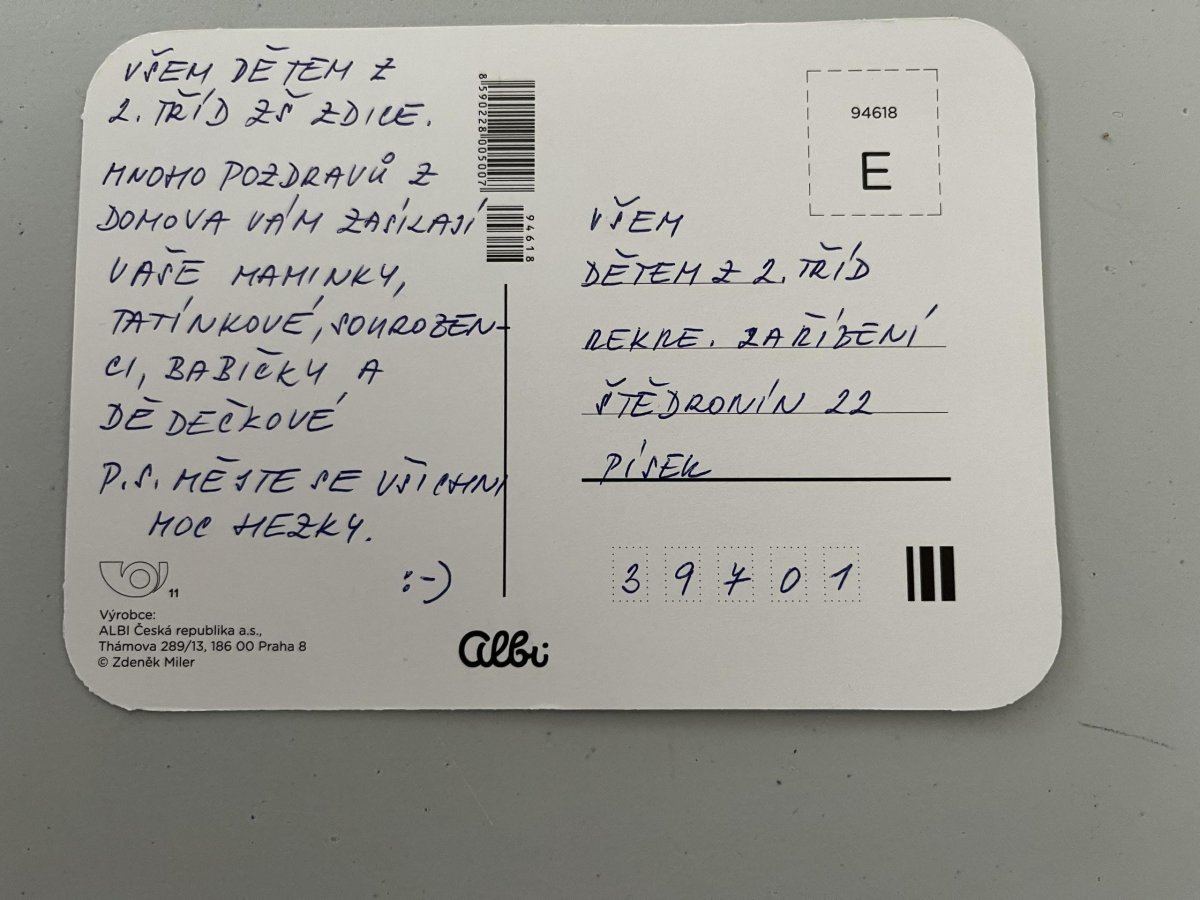 VŠEM DĚTEM Z
2. TŘÍD ZŠ ZDICE.
MNOHO POZDRAVŮ Z
DOMOVA VÁM ZASÍLAJÍ
VAŠE MAMINKY,
TATÍNKOVÉ, SOUROZEN-
CI, BABIČKY A
DĚDEČKOVÉ
P.S. MĚJTE SE VŠICHNI
MOC HEZKY.
:-)
11
Výrobce:
ALBI Česká republika a.s.,
Thámova 289/13, 186 00 Praha 8
© Zdeněk Miler
8590228005007
94618
albi
94618
E
VŠEM
DĚTEM Z 2. TŘÍD
REKRE. ZAŘÍZENÍ
ŠTĚDRONÍN 22
PÍSEK
39701